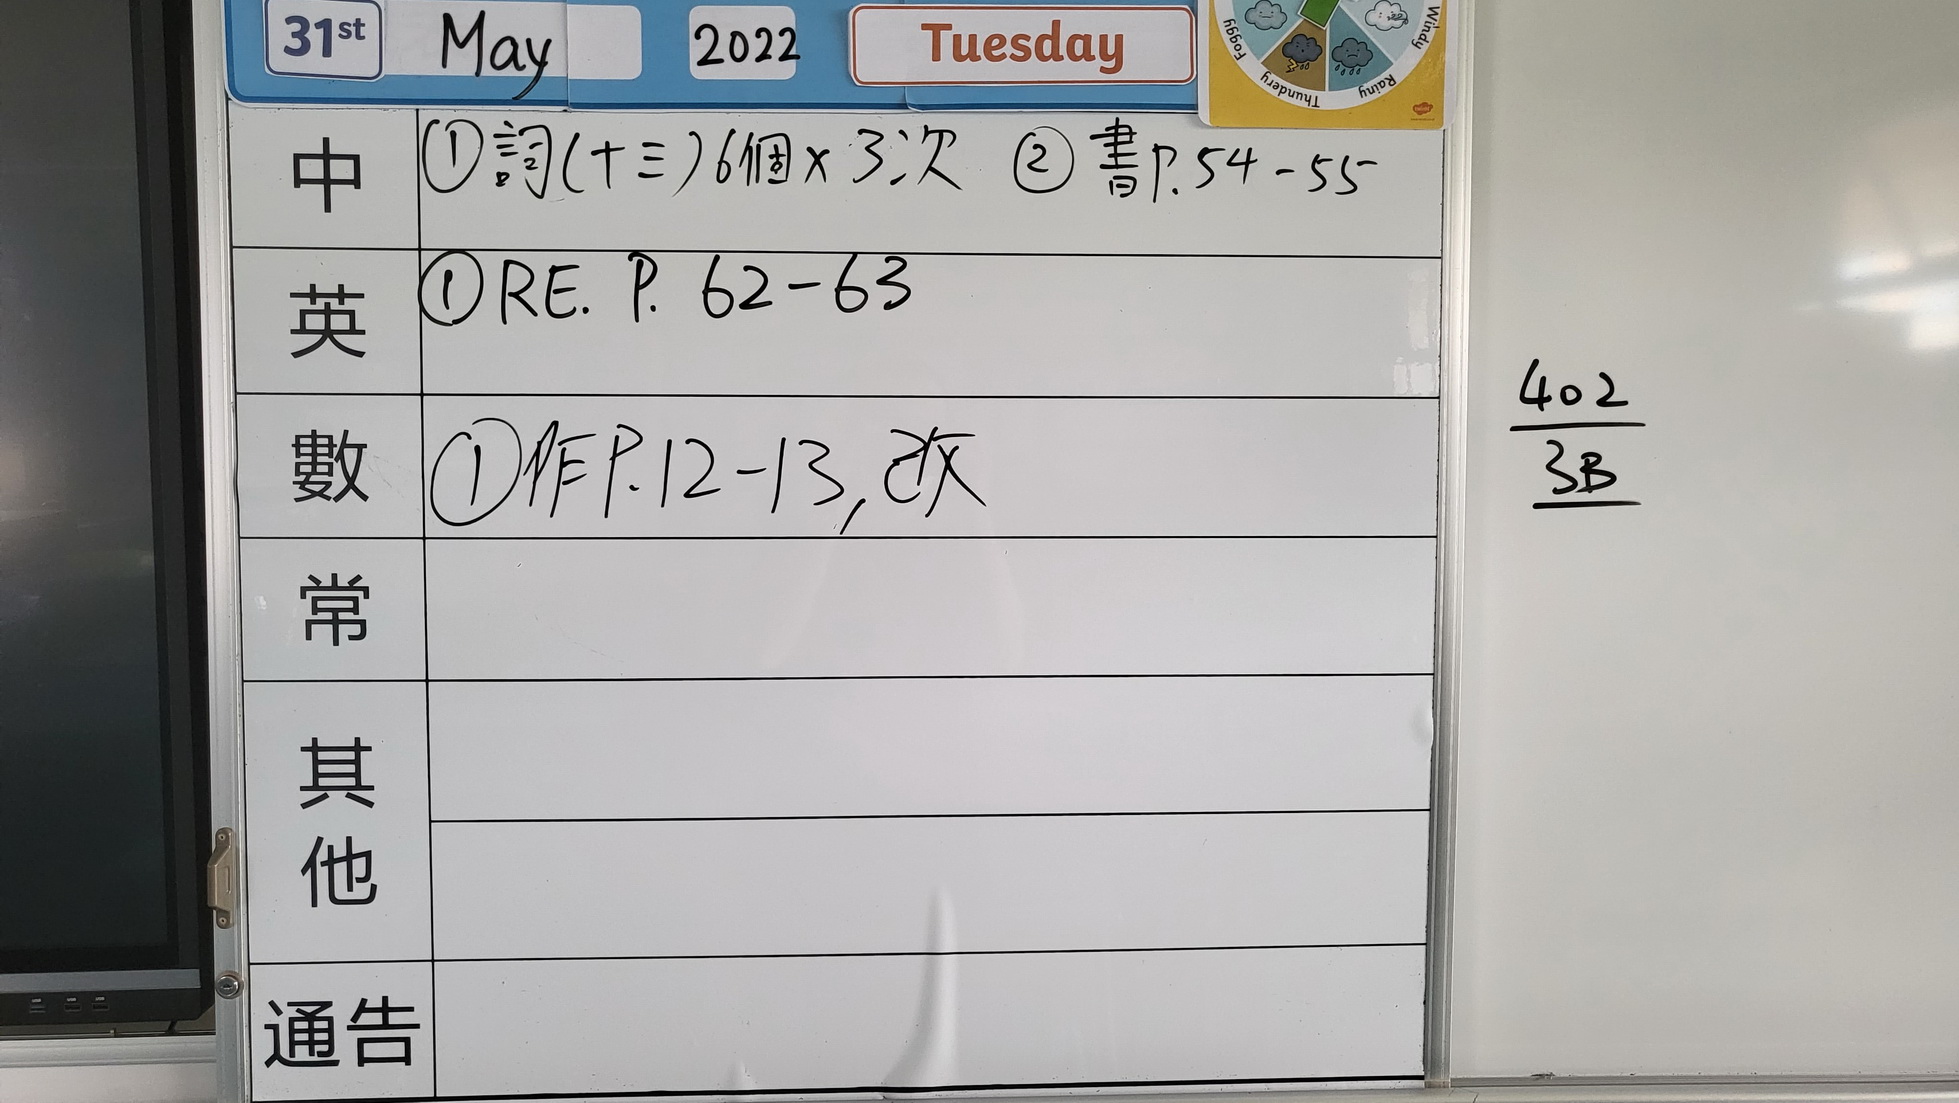 31st May 2022 Tuesday
Foggy Thundery Rainy Windy
中 ①詞(十三)6個x3次 ②書P.54-55
英 ①RE. P. 62-63
數 ①作P.12-13,改
常
其他
通告
402
3B